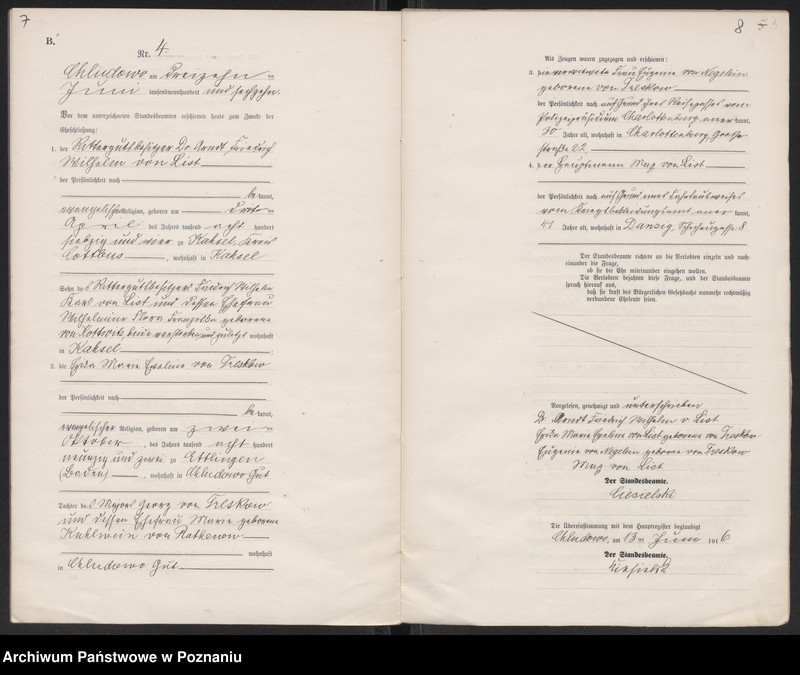 7
B.
Nr. 4
Chludowo, am dreizehn ten
Juni tausendneunhundert und sechzehn.
Vor dem unterzeichneten Standesbeamten erschienen heute zum Zwecke der
Eheschließung:
1. der Rittergutsbesitzer Dr. Arndt Friedrich
Wilhelm von List
der Persönlichkeit nach
be kannt,
evangelischer Religion, geboren am drit ten
April des Jahres tausend acht hundert
siebzig und vier zu Kahsel, Kreis
Cottbus, wohnhaft in Kahsel
Sohn des Rittergutsbesitzers Friedrich Wilhelm
Karl von List und dessen Ehefrau
Wilhelmine Flora Franziska geborene
von Kottwitz, beide verstorben und zuletzt wohnhaft
in Kahsel;
2. die Erika Marie Eveline von Treskow
der Persönlichkeit nach
be kannt,
evangelischer Religion, geboren am zwei ten
Oktober, des Jahres tausend acht hundert
neunzig und zwei zu Ettlingen
(Baden), wohnhaft in Chludowo Gut
Tochter des Majors Georg von Treskow
und dessen Ehefrau Marie geborene
von Rathenow
wohnhaft
in Chludowo Gut
8
Als Zeugen waren zugezogen und erschienen:
3. die verwitwete Frau Eugenie von
geborene von Treskow
der Persönlichkeit nach auf Grund ihres Reisepasses vom
Polizeipräsidium Charlottenburg aner kannt,
30 Jahre alt, wohnhaft in Charlottenburg, Goethe-
straße 22
4. der Hauptmann Max von List
der Persönlichkeit nach auf Grund eines
vom Kriegsbekleidungsamt aner kannt,
41 Jahre alt, wohnhaft in Danzig, 8
Der Standesbeamte richtete an die Verlobten einzeln und nach-
einander die Frage,
ob sie die Ehe miteinander eingehen wollen.
Die Verlobten bejahten diese Frage, und der Standesbeamte
sprach hierauf aus,
daß sie kraft des Bürgerlichen Gesetzbuchs nunmehr rechtmäßig
verbundene Eheleute seien.
Vorgelesen, genehmigt und unterschrieben
Dr Arndt Friedrich Wilhelm v List
Erika Marie Eveline von List geborene von Treskow
Eugenie von geborene von Treskow
Max von List
Der Standesbeamte.
Ciesielski
Die Übereinstimmung mit dem Hauptregister beglaubigt
Chludowo, am 13 ten Juni 1916
Der Standesbeamte.
Ciesielski
Archiwum Państwowe w Poznaniu